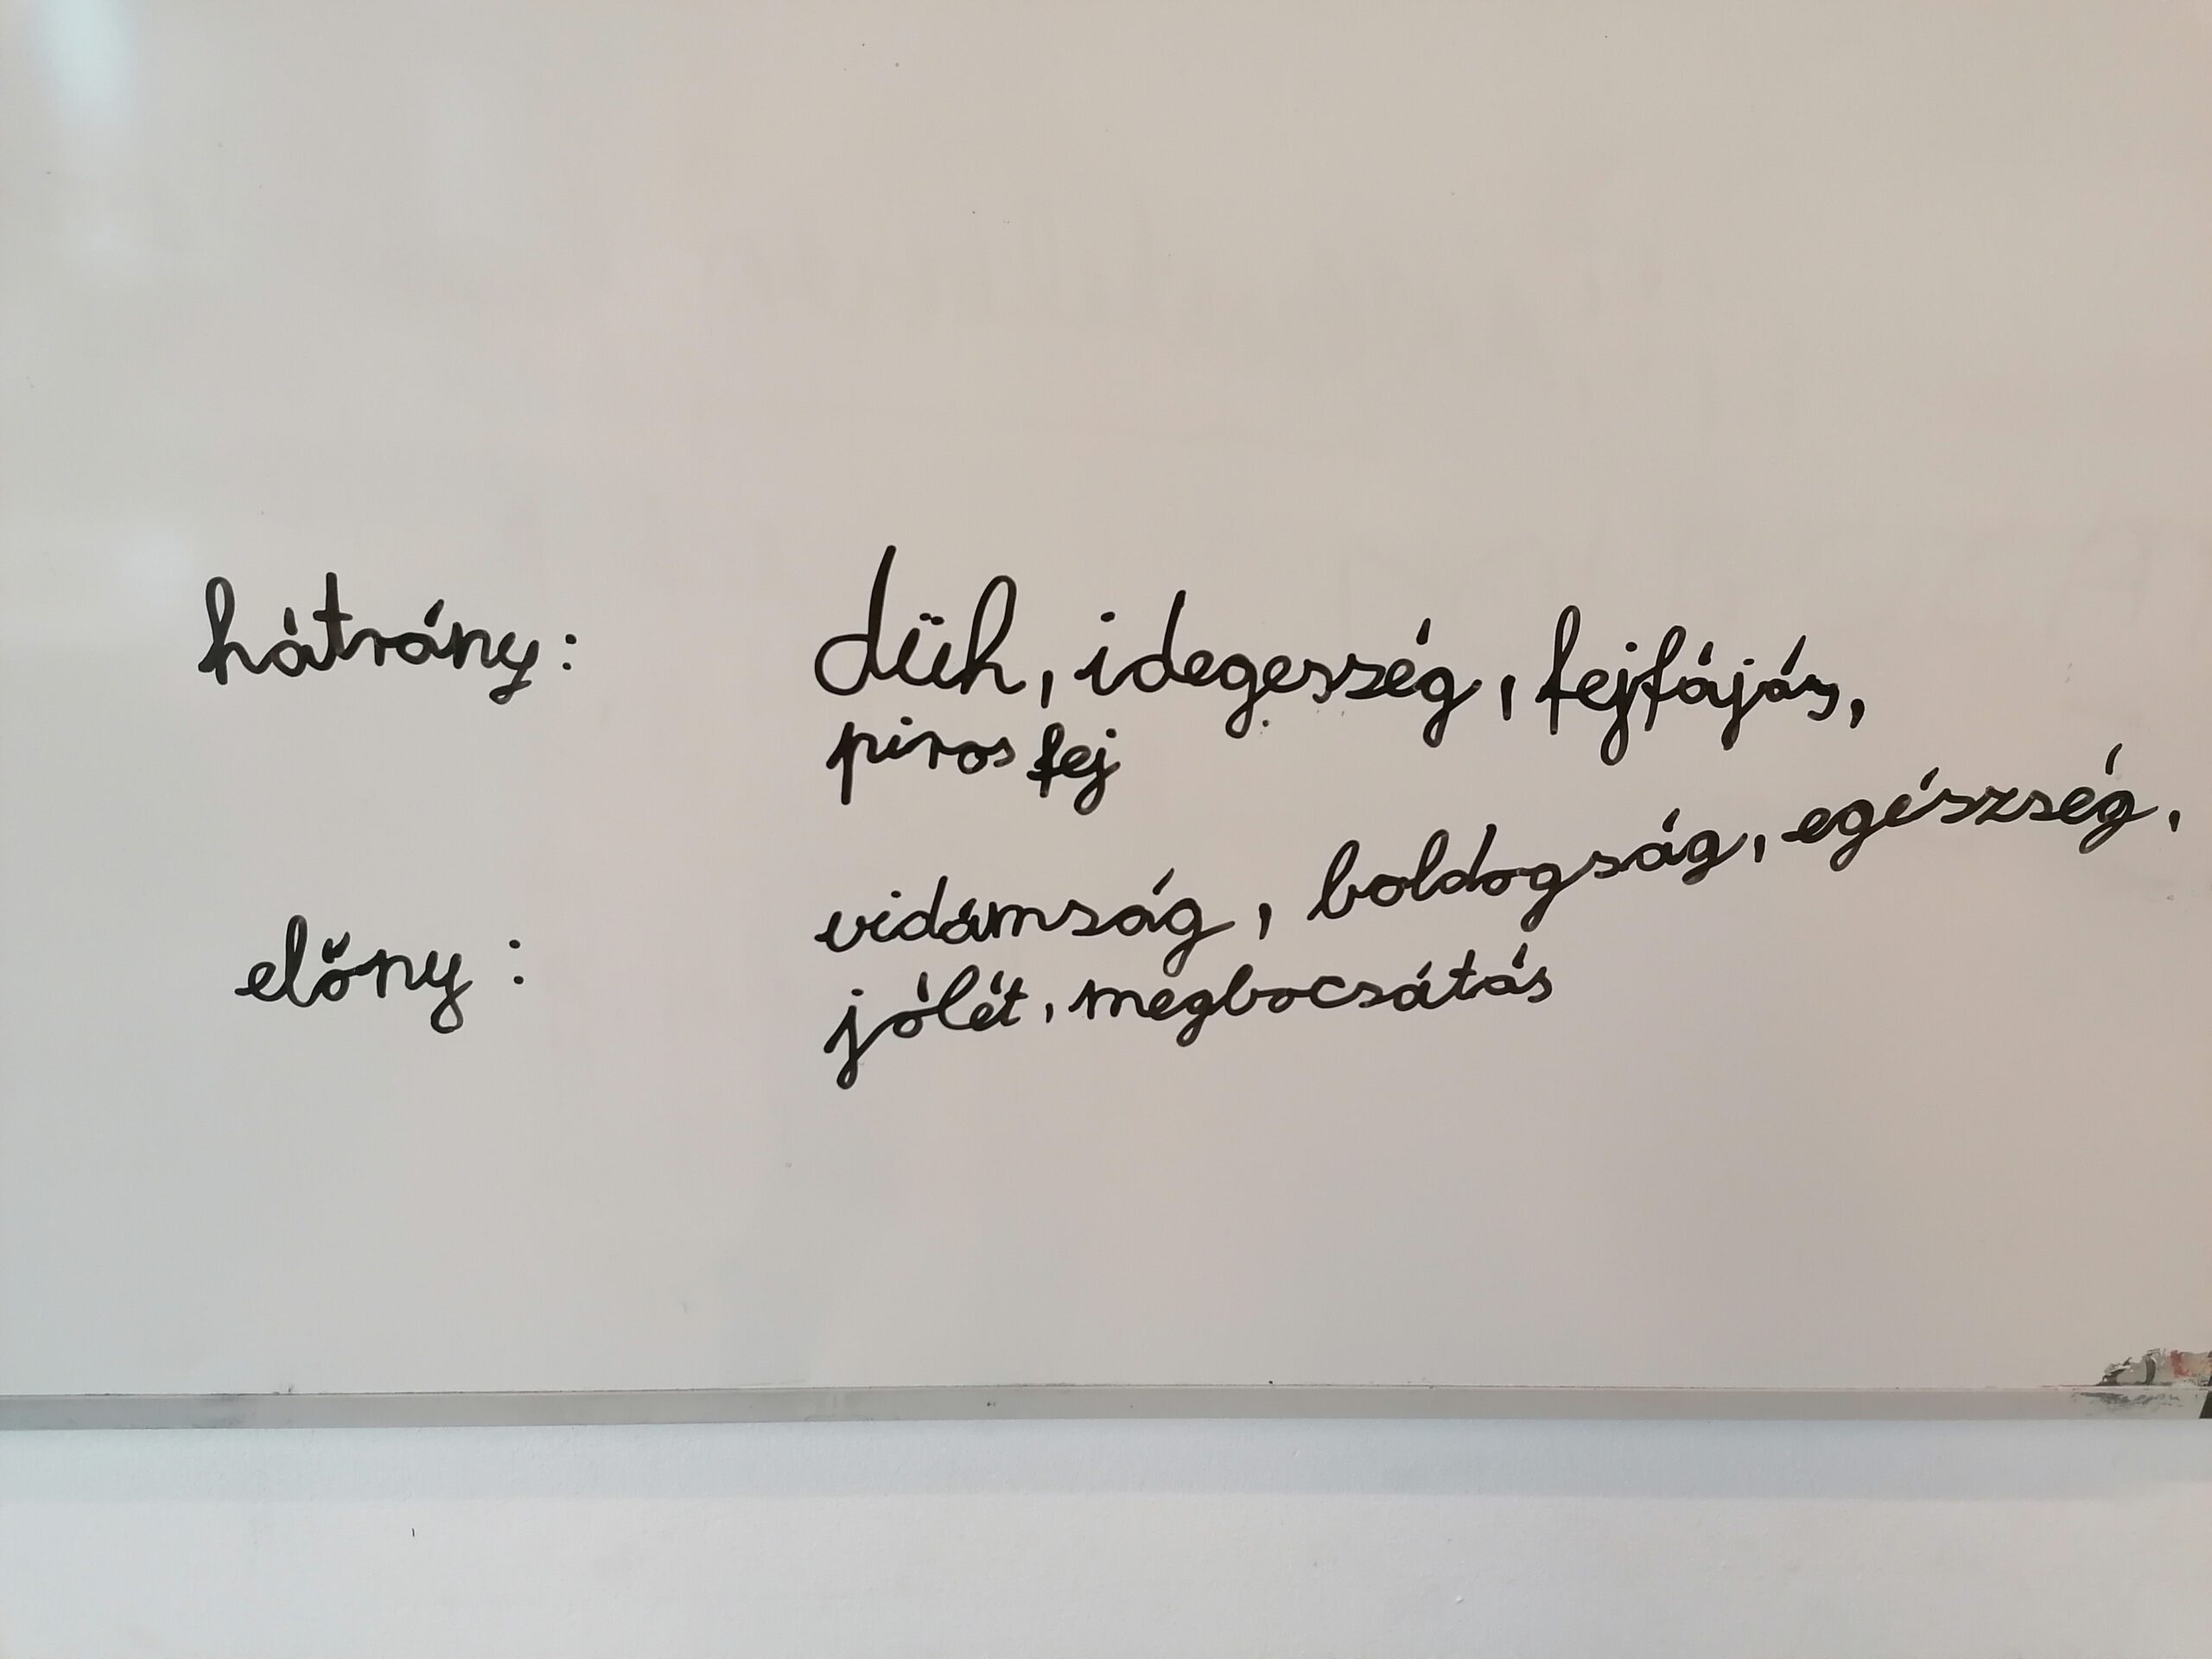 hátrány: düh, idegesség, fejfájás,
piros fej
előny: vidámság, boldogság, egészség,
jólét, megbocsátás